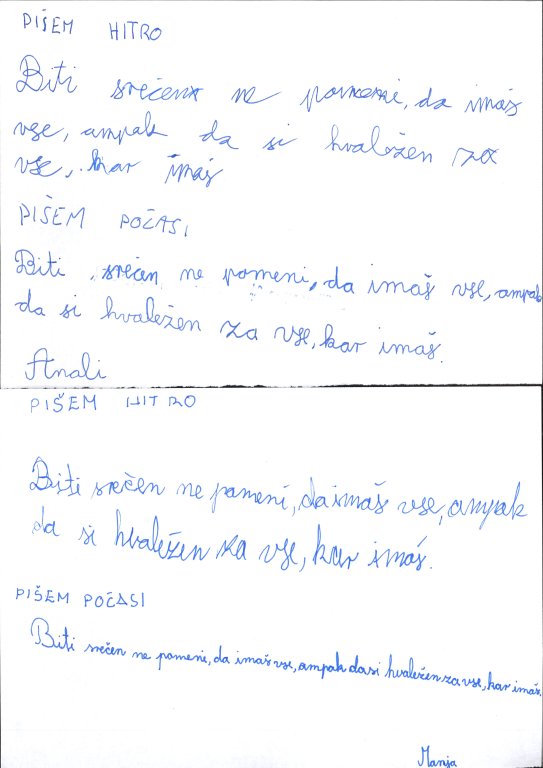 PIŠEM HITRO
Biti srečen ne pomeni, da imaš
vse, ampak da si hvaležen za
vse, kar imaš
PIŠEM POČASI
Biti srečen ne pomeni, da imaš vse, ampak
da si hvaležen za vse, kar imaš.
Anali
PIŠEM HITRO
Biti srečen ne pomeni, da imaš vse, ampak
da si hvaležen za vse, kar imaš.
PIŠEM POČASI
Biti srečen ne pomeni, da imaš vse, ampak da si hvaležen za vse, kar imaš.
Manja